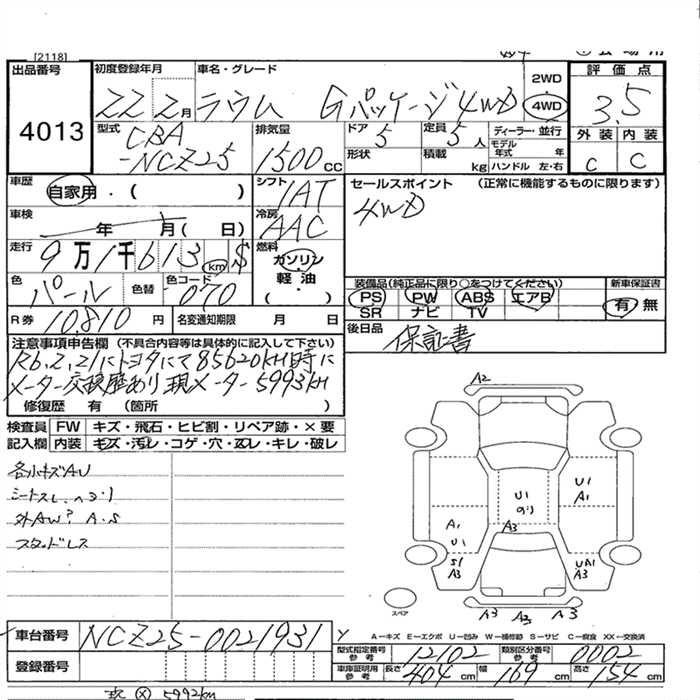 [2118]
出品番号
4013
初度登録年月
22 2月
車名・グレード
ラウム Gパッケージ 4WD
2WD
4WD
評価点
3.5
外装 内装
C C
型式
CBA
-NCZ25
排気量
1500cc
ドア
5
定員
5人
ディーラー・並行
モデル年式 年
形状
積載 kg
ハンドル 左・右
車歴
自家用・( )
シフト
IAT
車検
年 月( 日)
冷房
AAC
走行
9万1千613km $
燃料
ガソリン・軽油・( )
色
パール
色替
色コード
070
R券
10,810円
名変通知期限 月 日
セールスポイント (正常に機能するものに限ります)
4WD
装備品(純正品に限り○をつけてください)
PS PW ABS エアB
SR ナビ TV
新車保証書
有 無
後日品
保証書
注意事項申告欄 (不具合内容等は具体的に記入して下さい)
R6,2,21にトヨタにて85620KM時に
メーター交換歴あり 現メーター5993KM
修復歴 有 (箇所 )
検査員記入欄
FW キズ・飛石・ヒビ割・リペア跡・×要
内装 キズ・汚レ・コゲ・穴・ヌレ・キレ・破レ
各小キズAU
外AW
スタッドレス
A2
U1
A1
U1
A3
A1
U1
S1
A3
A3
A3 A3 A3
スペア
A－キズ E－エクボ U－凹み W－補修跡 S－サビ C－腐食 XX－交換済
車台番号
NCZ25-0021931
登録番号
型式指定番号参考
12102
類別区分番号参考
0002
車庫証明用参考
長さ 404cm 幅 169cm 高さ 154cm
現 5992km